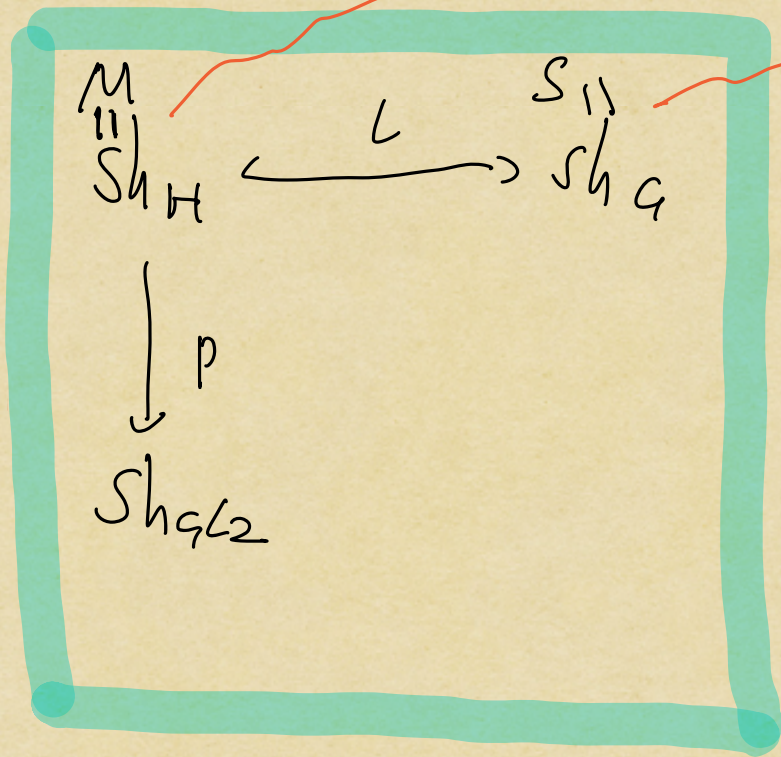 M S
|| ||
Sh_H ↪ ι Sh_G
↓ p
Sh_GL2